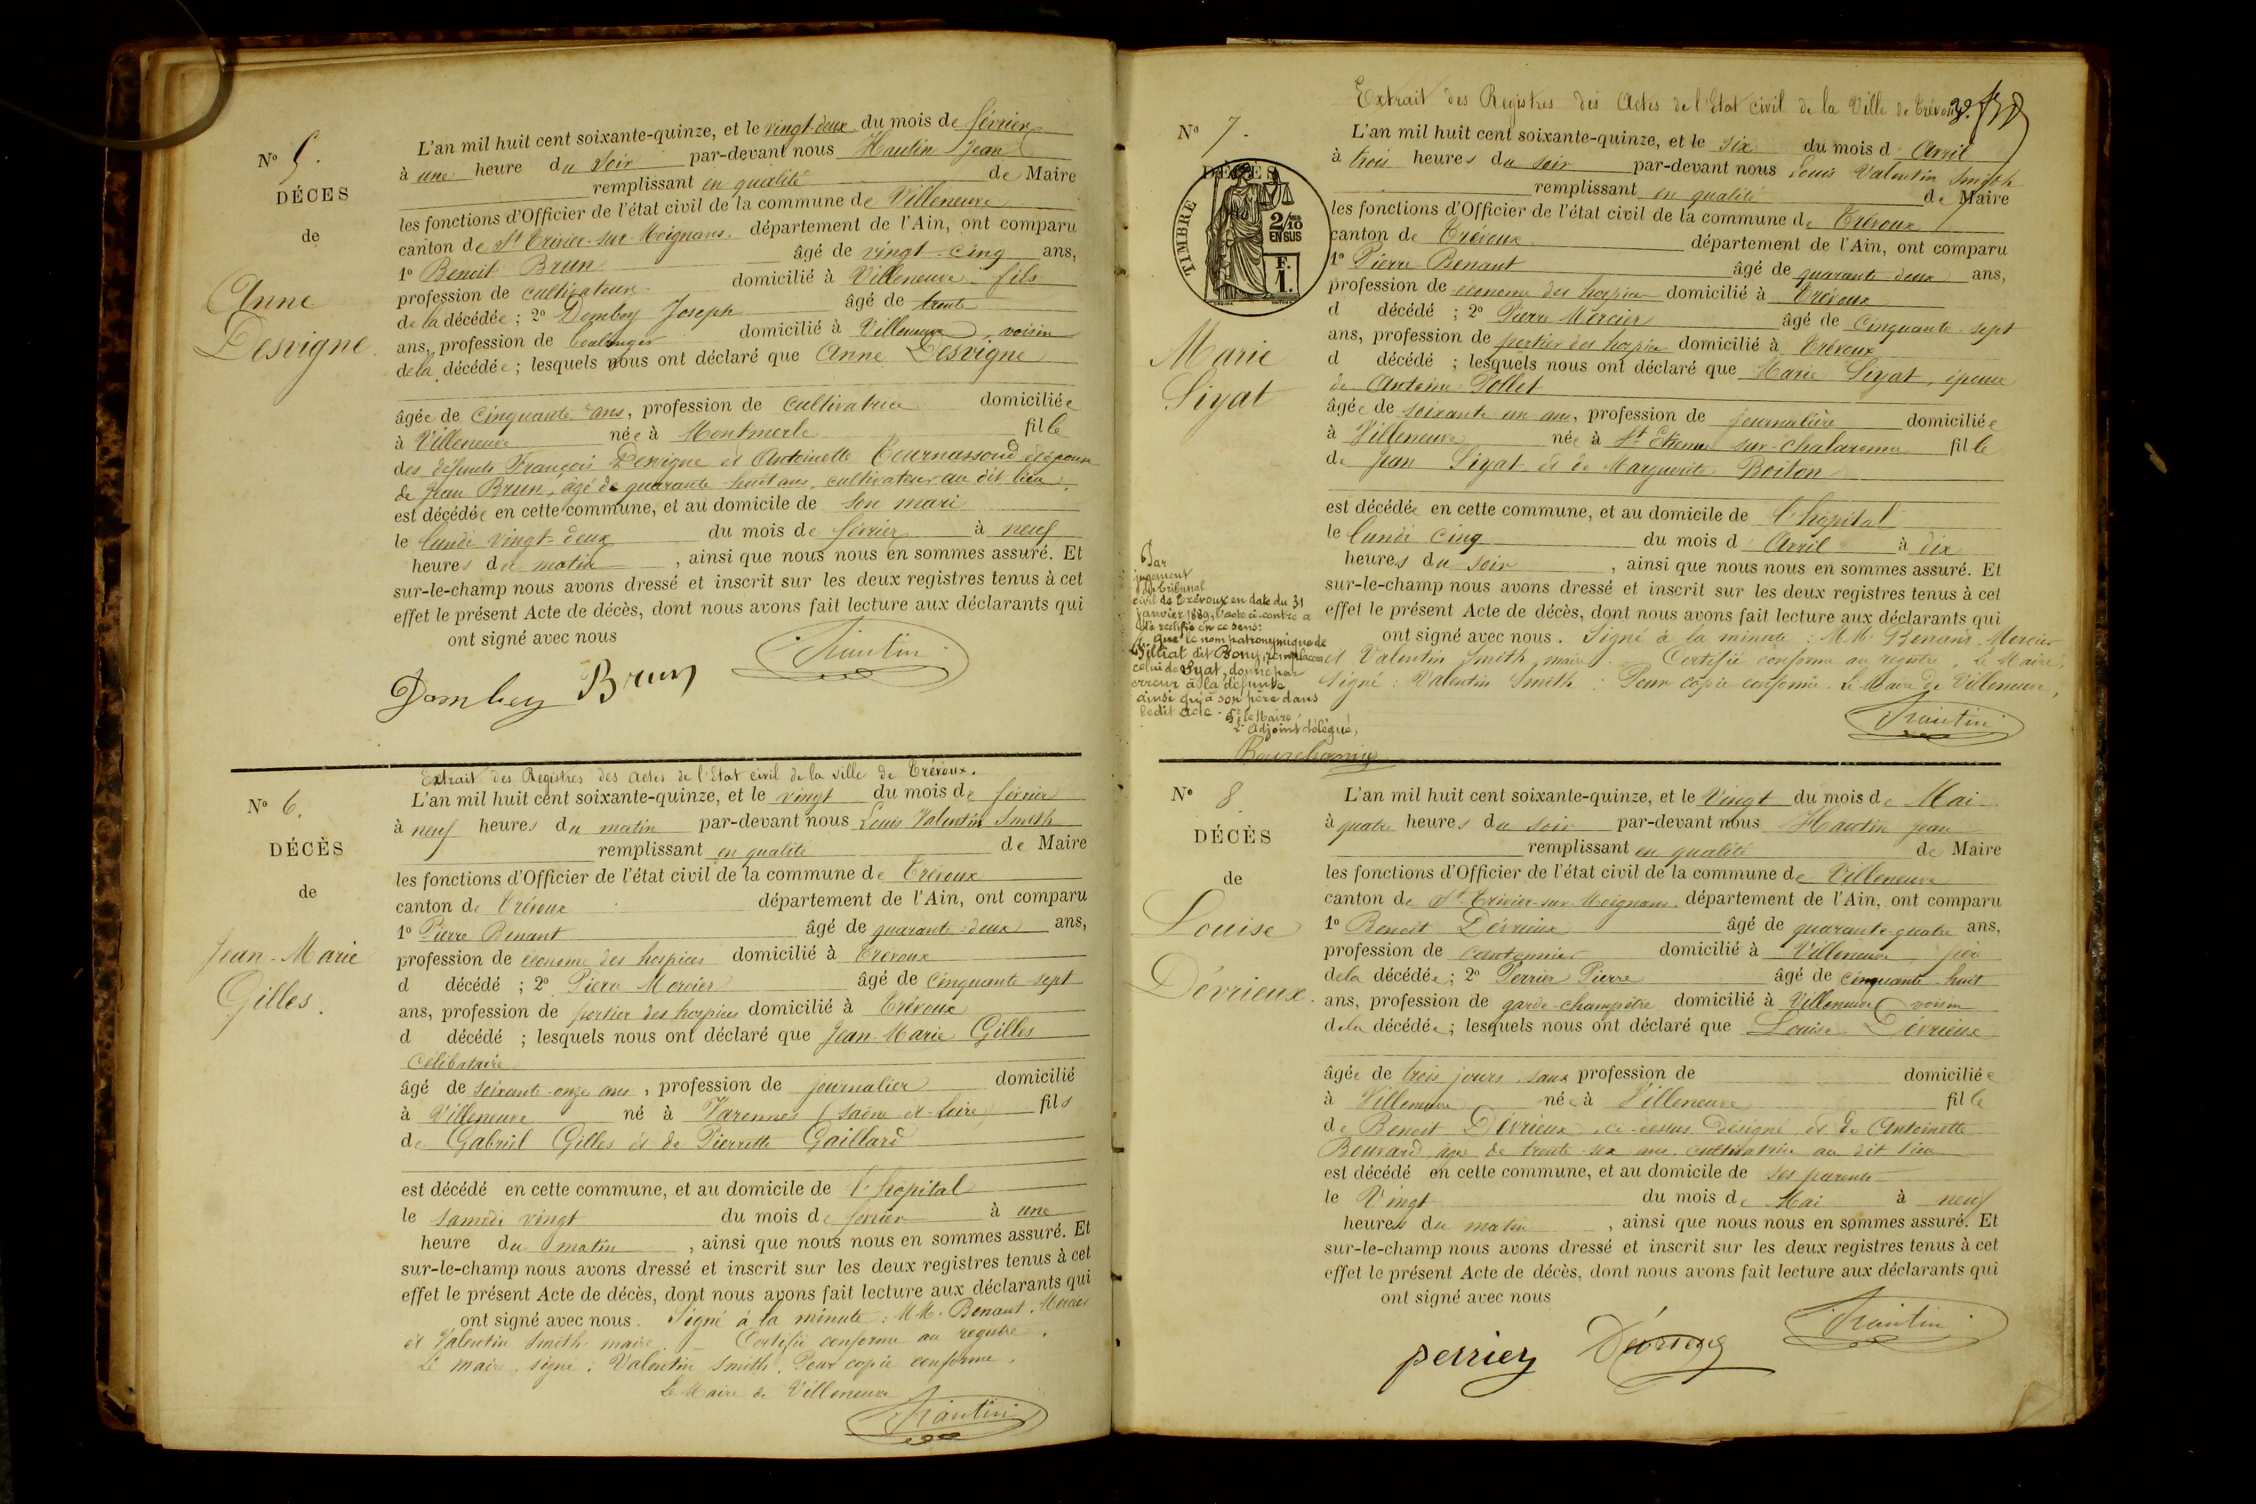 N° 5.
DÉCES
de
Anne
Desvigne.
L'an mil huit cent soixante-quinze, et le vingt-deux du mois de février
à une heure du soir par-devant nous Hautin Jean
remplissant en qualité de Maire
les fonctions d'Officier de l'état civil de la commune de Villeneuve
canton de St Trivier-sur-Moignans département de l'Ain, ont comparu
1° Benoit Brun âgé de vingt-cinq ans,
profession de cultivateur domicilié à Villeneuve fils
de la décédée ; 2° Dombey Joseph âgé de trente
ans, profession de boulanger domicilié à Villeneuve, voisin
de la décédée ; lesquels nous ont déclaré que Anne Desvigne
âgée de cinquante ans, profession de cultivatrice domiciliée
à Villeneuve née à Montmerle fille
des défunts François Desvigne et Antoinette Tournassoud et épouse
de Jean Brun, âgé de quarante-huit ans, cultivateur au dit lieu,
est décédée en cette commune, et au domicile de son mari
le lundi vingt-deux du mois de février à neuf
heures du matin, ainsi que nous nous en sommes assuré. Et
sur-le-champ nous avons dressé et inscrit sur les deux registres tenus à cet
effet le présent Acte de décès, dont nous avons fait lecture aux déclarants qui
ont signé avec nous
Dombey Brun Hautin
N° 6.
DÉCÈS
de
Jean-Marie
Gilles.
Extrait des Registres des actes de l'Etat civil de la ville de Trévoux.
L'an mil huit cent soixante-quinze, et le vingt du mois de février
à neuf heures du matin par-devant nous Louis Valentin Smith
remplissant en qualité de Maire
les fonctions d'Officier de l'état civil de la commune de Trévoux
canton de Trévoux département de l'Ain, ont comparu
1° Pierre Benant âgé de quarante-deux ans,
profession de econome des hospices domicilié à Trévoux
d décédé ; 2° Pierre Mercier âgé de cinquante sept
ans, profession de portier des hospices domicilié à Trévoux
d décédé ; lesquels nous ont déclaré que Jean-Marie Gilles
célibataire
âgé de soixante-onze ans, profession de journalier domicilié
à Villeneuve né à Varennes (Saône et Loire) fils
de Gabriel Gilles et de Pierrette Gaillard
est décédé en cette commune, et au domicile de l'hôpital
le samedi vingt du mois de février à une
heure du matin, ainsi que nous nous en sommes assuré. Et
sur-le-champ nous avons dressé et inscrit sur les deux registres tenus à cet
effet le présent Acte de décès, dont nous avons fait lecture aux déclarants qui
ont signé avec nous. Signé à la minute : M.M. Benant, Mercier
et Valentin Smith maire. Certifié conforme au registre.
Le maire, signé : Valentin Smith. Pour copie conforme,
Le Maire de Villeneuve
Hautin
Extrait des Registres des Actes de l'Etat civil de la Ville de Trévoux
N° 7.
DÉCÈS
TIMBRE
2/10
EN SUS
F.
1.
Marie
Siyat
L'an mil huit cent soixante-quinze, et le six du mois d Avril
à trois heures du soir par-devant nous Louis Valentin Smith
remplissant en qualité de Maire
les fonctions d'Officier de l'état civil de la commune de Trévoux
canton de Trévoux département de l'Ain, ont comparu
1° Pierre Benant âgé de quarante-deux ans,
profession de econome des hospices domicilié à Trévoux
d décédé ; 2° Pierre Mercier âgé de cinquante-sept
ans, profession de portier des hospices domicilié à Trévoux
d décédé ; lesquels nous ont déclaré que Marie Siyat, épouse
de Antoine Pollet
âgée de soixante un ans, profession de journalière domiciliée
à Villeneuve née à St Etienne sur-Chalaronne fille
de Jean Siyat et de Marguerite Boiton
est décédée en cette commune, et au domicile de l'hôpital
le lundi cinq du mois d Avril à dix
heures du soir, ainsi que nous nous en sommes assuré. Et
sur-le-champ nous avons dressé et inscrit sur les deux registres tenus à cet
effet le présent Acte de décès, dont nous avons fait lecture aux déclarants qui
ont signé avec nous. Signé à la minute : M.M. Benant, Mercier
et Valentin Smith, maire. Certifié conforme au registre. Le Maire,
Signé : Valentin Smith. Pour copie conforme. Le Maire de Villeneuve,
Hautin
Par
jugement
du Tribunal
civil de Trévoux en date du 31
janvier 1889, l'acte ci-contre a
été rectifié en ce sens :
Que le nom patronymique de
dit Bony, remplacera
celui de Syat, donné par
erreur à la défunte
ainsi qu'à son père dans
le dit acte.
Pr le Maire,
L'Adjoint délégué,
N° 8.
DÉCÈS
de
Louise
Dévrieux.
L'an mil huit cent soixante-quinze, et le Vingt du mois de Mai
à quatre heures du soir par-devant nous Hautin Jean
remplissant en qualité de Maire
les fonctions d'Officier de l'état civil de la commune de Villeneuve
canton de St Trivier-sur-Moignans département de l'Ain, ont comparu
1° Benoit Dévrieux âgé de quarante-quatre ans,
profession de cantonnier domicilié à Villeneuve, père
de la décédée ; 2° Perrier Pierre âgé de cinquante-huit
ans, profession de garde-champêtre domicilié à Villeneuve voisin
de la décédée ; lesquels nous ont déclaré que Louise Dévrieux
âgée de trois jours, sans profession de domiciliée
à Villeneuve née à Villeneuve fille
de Benoit Dévrieux, ci-dessus désigné et de Antoinette
Bouvard, âgée de trente-six ans, cultivatrice au dit lieu
est décédé en cette commune, et au domicile de ses parents
le Vingt du mois de Mai à neuf
heures du matin, ainsi que nous nous en sommes assuré. Et
sur-le-champ nous avons dressé et inscrit sur les deux registres tenus à cet
effet le présent Acte de décès, dont nous avons fait lecture aux déclarants qui
ont signé avec nous
perrier Dévrieux Hautin